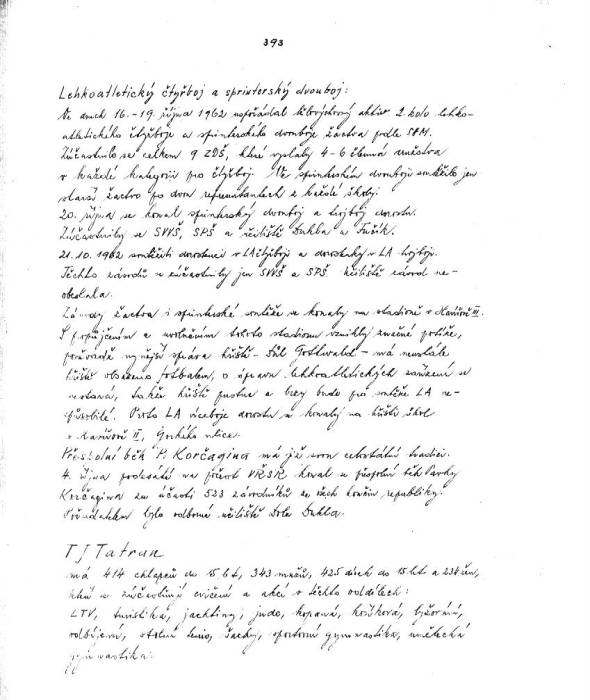 393
Lehkoatletický čtyřboj a sprinterský dvouboj:
Ve dnech 16.-19. října 1962 uspořádal tělovýchovný aktiv 2. kolo lehko-
atletického čtyřboje a sprinterského dvouboje žactva podle SHM.
Zúčastnilo se celkem 9 ZDŠ, které vyslaly 4-6 členná družstva
v každé kategorii pro čtyřboj. Ve sprinterském dvouboji soutěžilo jen
starší žactvo po dvou reprezentantech z každé školy.
20. října se konal sprinterský dvouboj a trojboj dorostu.
Zúčastnily se SVVŠ, SPŠ a učiliště Dukla a Fučík.
21.10.1962 soutěžili dorostenci v LA čtyřboji a dorostenky v LA trojboji.
Těchto závodů se zúčastnily jen SVVŠ a SPŠ. Učiliště závod ne-
obeslala.
Závody žactva i sprinterské soutěže se konaly na stadioně v Havířově II.
S propůjčením a uvolněním tohoto stadionu vznikly značné potíže,
poněvadž nynější správa hřiště - Důl Gottwald - má neustále
hřiště obsazeno fotbalem, o úpravu lehkoatletických zařízení se
nestará, takže hřiště pustne a brzy bude pro soutěže LA ne-
způsobilé. Proto LA víceboje dorostu se konaly na hřišti škol
v Havířově II, Gorkého ulice.
Přespolní běh P. Korčagina má již svou celostátní tradici.
4. října podesáté na počest VŘSR konal se přespolní běh Pavky
Korčagina za účasti 523 závodníků ze všech končin republiky.
Pořadatelem bylo odborné učiliště Dolu Dukla.
TJ Tatran
má 414 chlapců do 15 let, 343 mužů, 425 dívek do 15 let a 234 žen,
kteří se zúčastňují cvičení a akcí v těchto oddílech:
LTV, turistika, jachting, judo, kopaná, košíková, lyžování,
odbíjená, stolní tenis, šachy, sportovní gymnastika, umělecká
gymnastika.